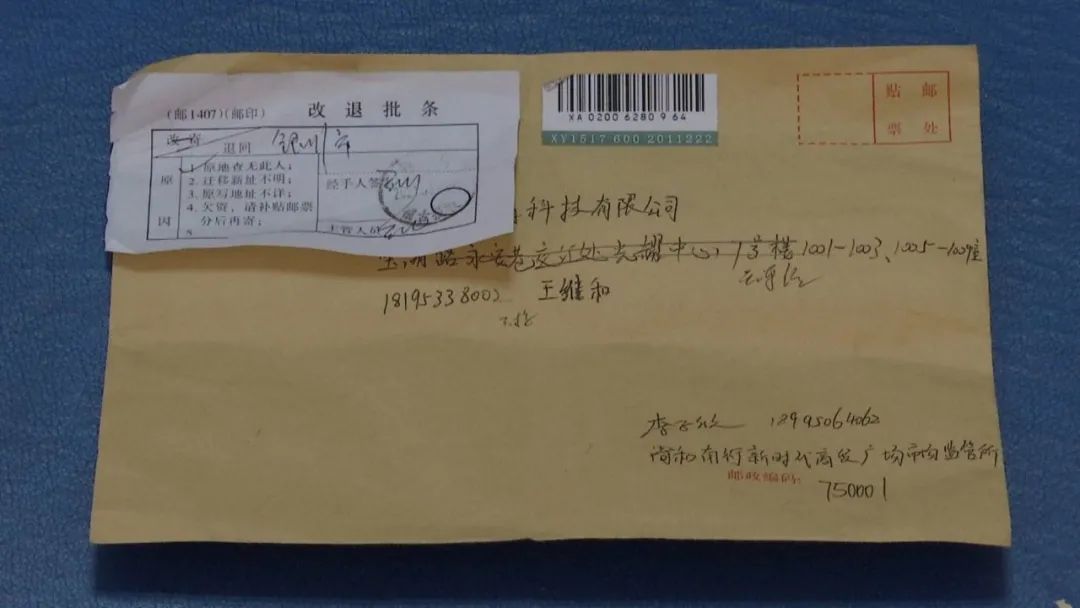 (邮1407)(邮印) 改退批条
改寄
退回 银川市
原因
1. 原地查无此人；
2. 迁移新址不明；
3. 原写地址不详；
4. 欠资，请补贴邮票
分后再寄；
5
经手人签
主管人员
XA 0200 6280 9 64
XY1517 600 2011222
贴邮
票处
科技有限公司
路永安巷交汇处光耀中心，1号楼1001-1003、1005-1009室
18195338002 王维和
18995064062
尚和南街新时代商业广场市场监管所
邮政编码：750001